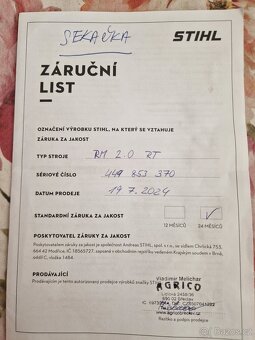 SEKAČKA
STIHL
ZÁRUČNÍ
LIST
OZNAČENÍ VÝROBKU STIHL, NA KTERÝ SE VZTAHUJE
ZÁRUKA ZA JAKOST
TYP STROJE RM 2.0 RT
SÉRIOVÉ ČÍSLO 449 853 370
DATUM PRODEJE 19.7.2024
STANDARDNÍ ZÁRUKA ZA JAKOST
12 MĚSÍCŮ
24 MĚSÍCŮ
POSKYTOVATEL ZÁRUKY ZA JAKOST
Poskytovatelem záruky za jakost je společnost Andreas STIHL, spol. s r.o., se sídlem Chrlická 753,
664 42 Modřice, IČ 18565727, zapsaná v obchodním rejstříku vedeném Krajským soudem v Brně,
oddíl C, vložka 1484.
PRODÁVAJÍCÍ
Prodávajícím je tento autorizovaný prodejce výrobků značky STIHL
Vladimír Melichar
AGRICO
690 02 Břeclav
www.agricobreclav.cz
Razítko a podpis prodejce